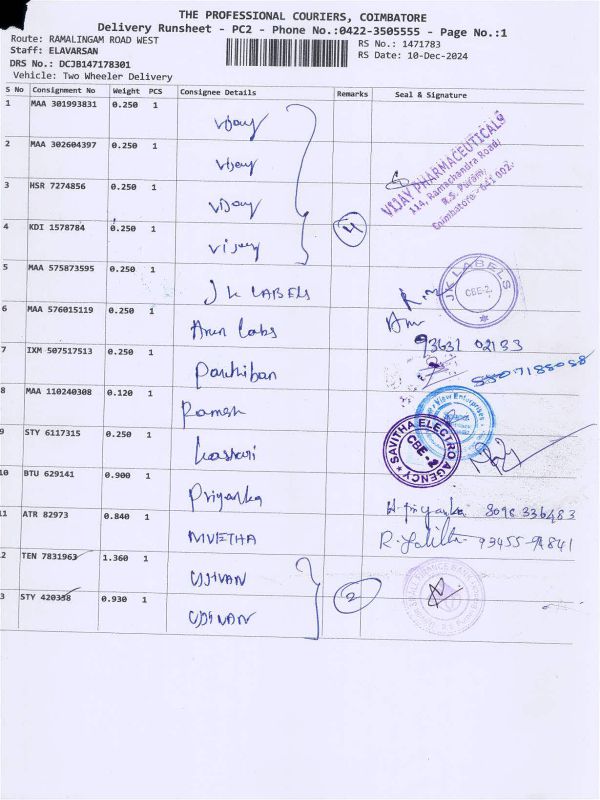 THE PROFESSIONAL COURIERS, COIMBATORE
Delivery Runsheet - PC2 - Phone No.:0422-3505555 - Page No.:1
Route: RAMALINGAM ROAD WEST
RS No.: 1471783
Staff: ELAVARSAN
RS Date: 10-Dec-2024
DRS No.: DCJB147178301
Vehicle: Two Wheeler Delivery
S No Consignment No Weight PCS Consignee Details Remarks Seal & Signature
1 MAA 301993831 0.250 1 Vijay
2 MAA 302604397 0.250 1 Vijay
VIJAY PHARMACEUTICALS
114, Ramachandra Road,
R.S. Puram,
Coimbatore - 641 002.
3 HSR 7274856 0.250 1 Vijay
4 KDI 1578784 0.250 1 Vijay 4
5 MAA 575873595 0.250 1 JK LABELS
JK LABELS
CBE-2.
6 MAA 576015119 0.250 1 Arun Labs
93631 02133
7 IXM 507517513 0.250 1 Parthiban
8 MAA 110240308 0.120 1 Ramesh
View Enterprises
9 STY 6117315 0.250 1
SAVITHA ELECTRO AGENCY
CBE - 2
10 BTU 629141 0.900 1 Priyanka H. Priyanka 8098 336483
11 ATR 82973 0.840 1 R. Lalitha 93455-94841
2 TEN 7831963 1.360 1 UJJIVAN
2
SMALL FINANCE BANK
3 STY 420388 0.930 1 UJJIVAN